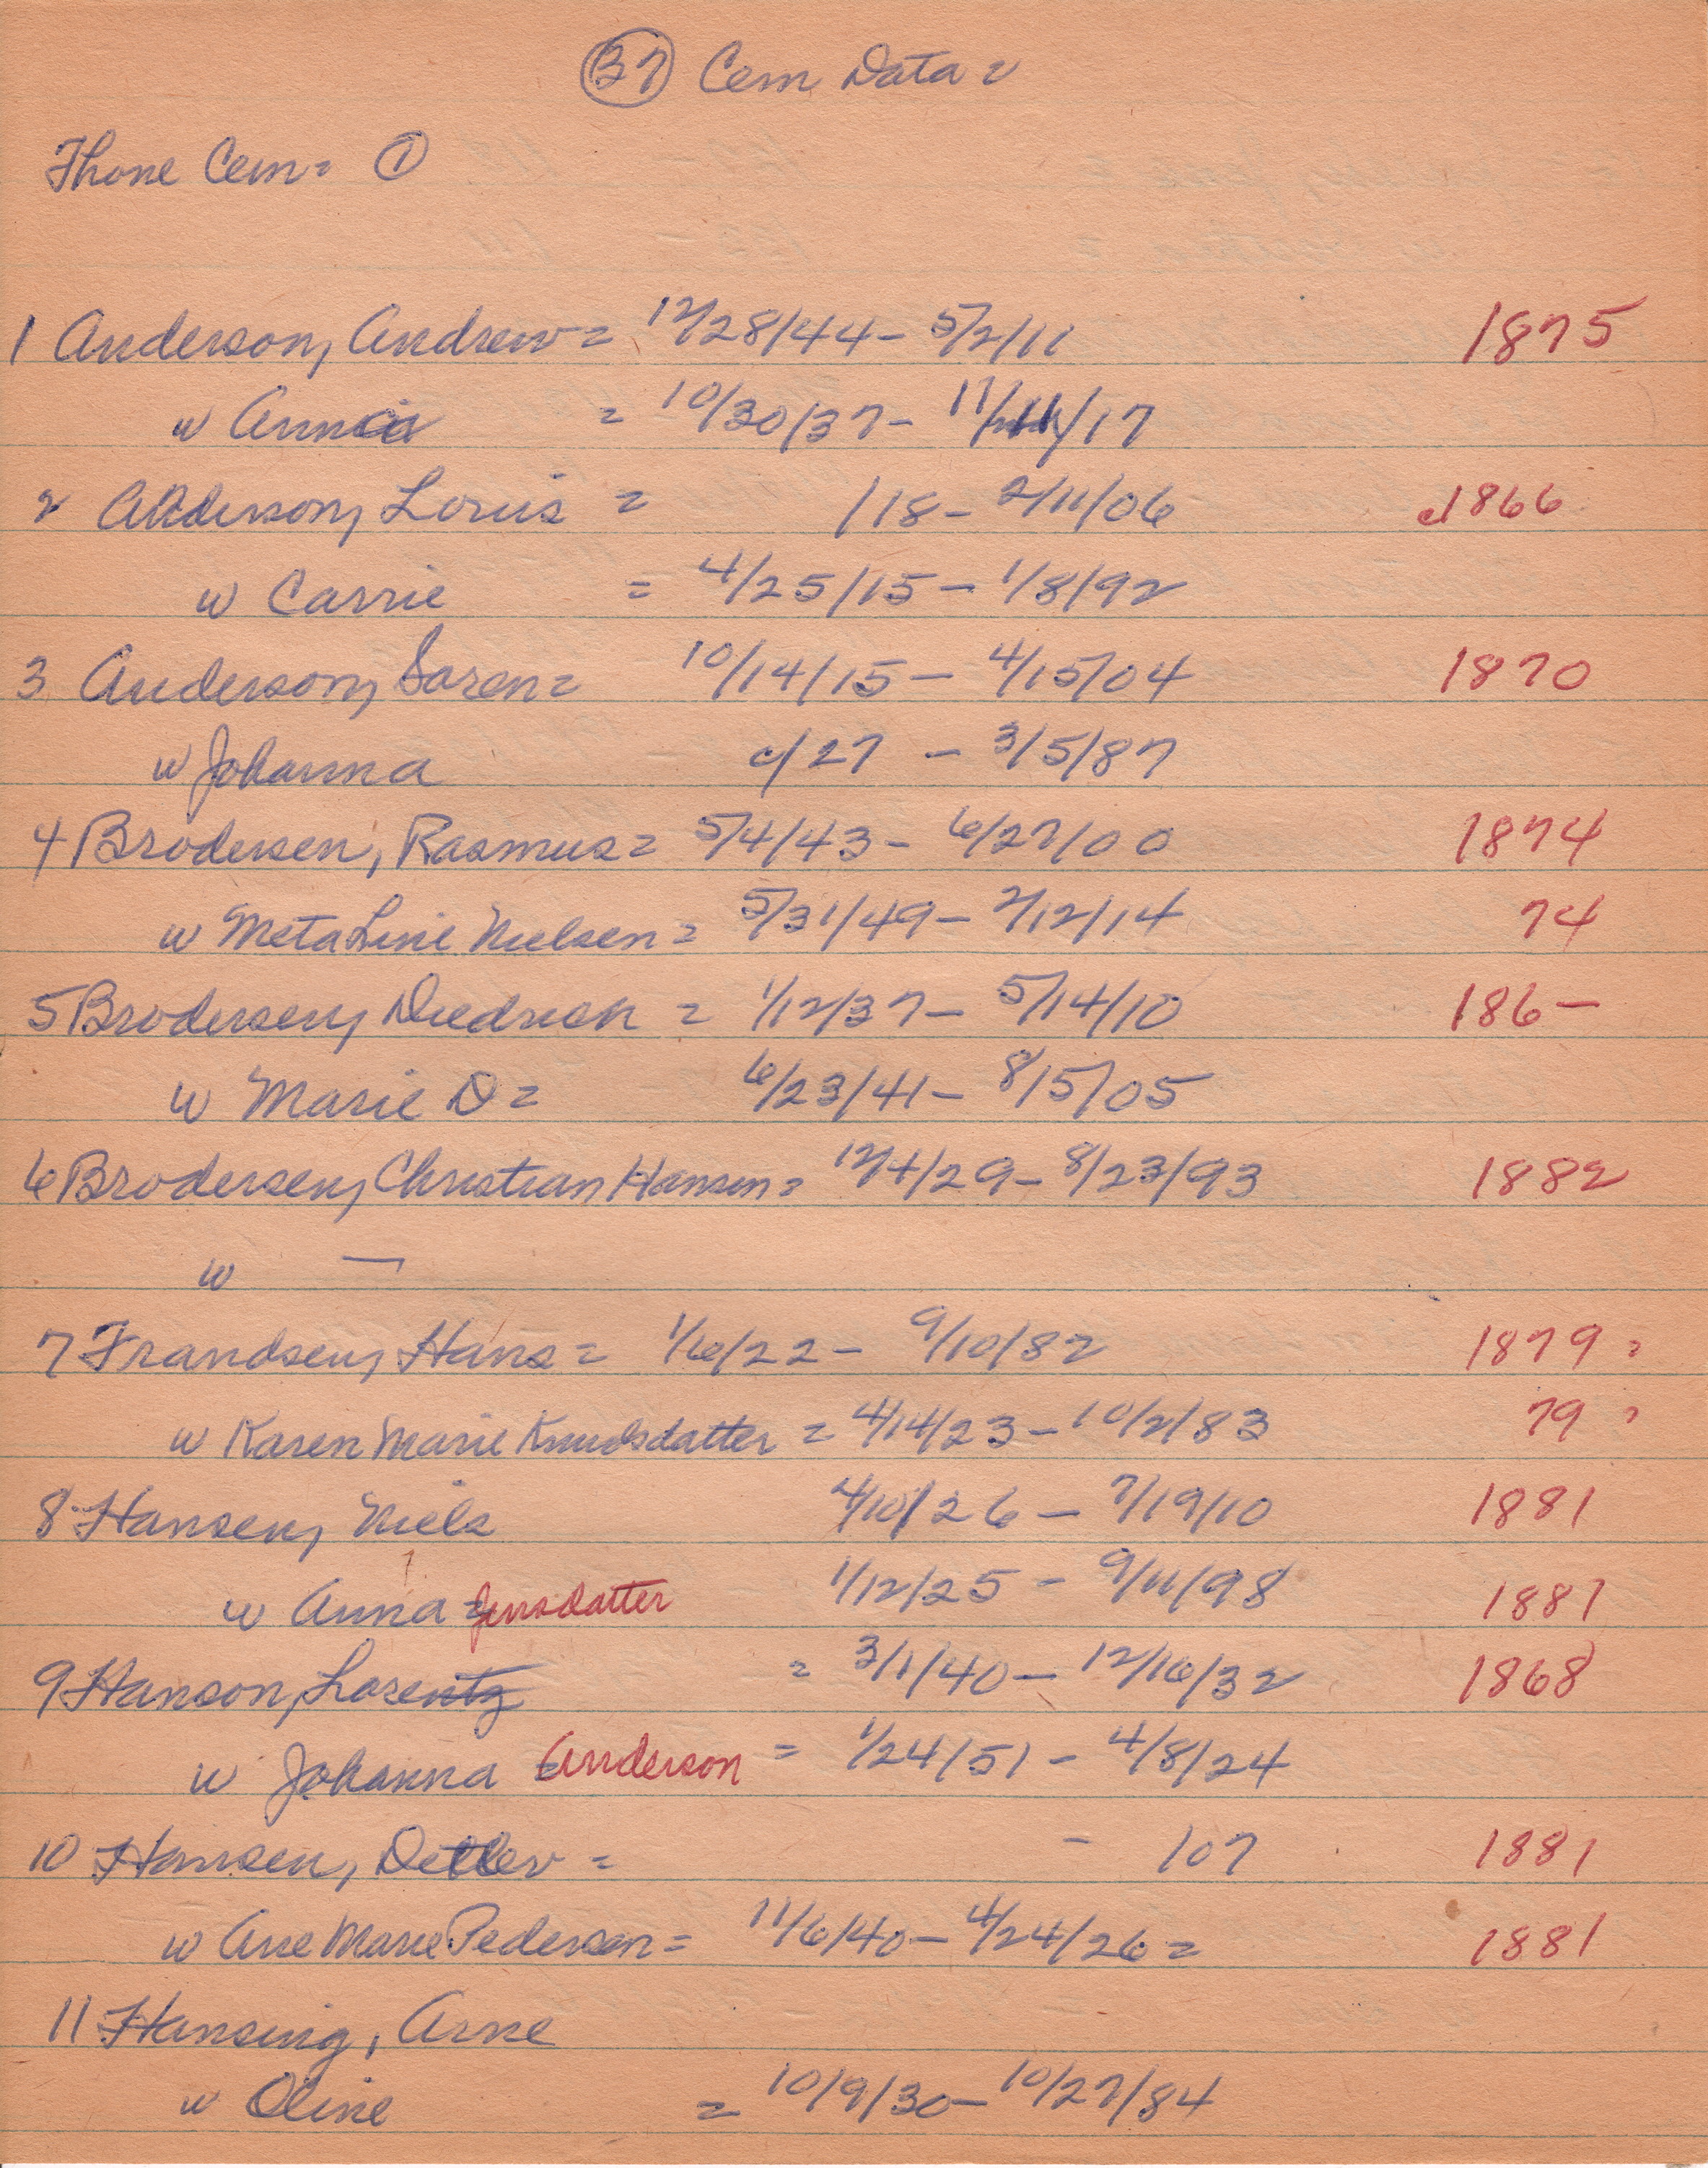 37 Cem Data =
Thone Cem = 1
1 Anderson, Andrew = 12/28/44 - 5/2/11 1875
w Anna = 10/30/37 - 11/ /17
2 Anderson, Louis = /18 - 2/11/06 c/1866
w Carrie = 4/25/15 - 1/8/92
3 Anderson, Soren = 10/14/15 - 4/15/04 1870
w Johanna c/27 - 3/5/87
4 Brodersen, Rasmus = 5/4/43 - 6/27/00 1874
w Meta Line Nielsen = 5/31/49 - 2/12/14 74
5 Brodersen, Diedrich = 1/12/37 - 5/14/10 186-
w Marie D = 6/23/41 - 8/15/05
6 Brodersen, Christian Hansen = 12/4/29 - 8/23/93 1882
w —
7 Frandsen, Hans = 1/6/22 - 9/10/82 1879 =
w Karen Marie Knudsdatter = 4/14/23 - 10/2/83 79 ?
8 Hansen, Niels 4/10/26 - 7/19/10 1881
w Anna = Jensdatter 1/12/25 - 9/11/98 1881
9 Hanson, Lorentz = 3/1/40 - 12/16/32 1868
w Johanna Anderson = 1/24/51 - 4/8/24
10 Hansen, Detlev = - 107 1881
w Ane Marie Pedersen = 11/6/40 - 4/24/26 = 1881
11 Hansing, Arne
w Oline = 10/9/30 - 10/27/84